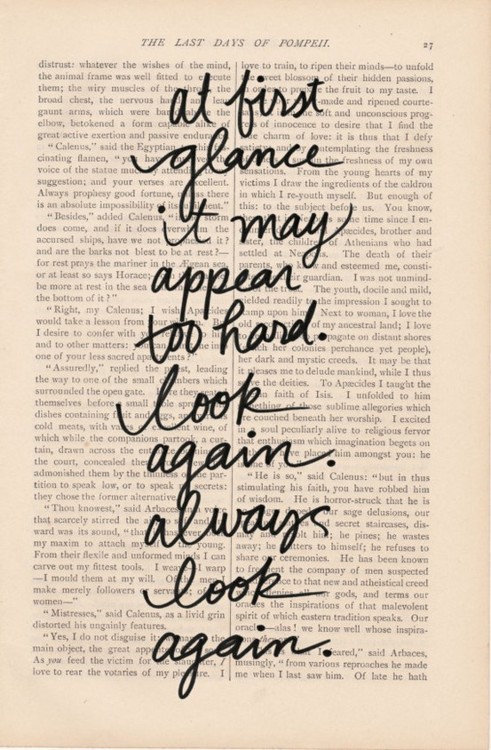 THE LAST DAYS OF POMPEII. 27
at first
glance
it may
appear
too hard.
look
again.
always
look
again.
distrust: whatever the wishes of the mind,
the animal frame was well fitted to execute
them; the wiry muscles of the
broad chest, the nervous
gaunt arms, which were
elbow, betokened a form
great active exertion and passive
"Calenus," said the Egyptian,
cinating flamen, "you
voice of the statue
suggestion; and your verses are
Always prophesy good fortune,
is an absolute impossibility
"Besides," added Calenus,
does come, and if it does
accursed ships, have we not it?
and are the barks not blest to be at rest?—
for rest prays the mariner in the Ægean sea,
or at least so says Horace;
be more at rest in the sea
the bottom of it?"
"Right, my Calenus; I wish Apæcides
would take a lesson
I desire to confer with
and to other matters:
one of your less sacred
"Assuredly," replied the priest, leading
the way to one of the small chambers which
surrounded the open gate.
themselves before small table spread
dishes containing fruit and
cold meats, with wine, of
which while the companions partook, a cur-
tain, drawn across the
the court, concealed
admonished them by the par-
tition to speak low, or to speak secrets:
they chose the former alternative.
"Thou knowest," said Arbaces,
that scarcely stirred the
ward was its sound, "that
my maxim to attach young.
From their flexile and unformed minds I can
carve out my fittest tools. I weave—I warp
—I mould them at my will. Of
make merely followers servants;
women—"
"Mistresses," said Calenus, as a livid grin
distorted his ungainly features.
"Yes, I do not disguise it:
main object, the great
As you feed the victim for slaughter, I
love to rear the votaries of my pleasure. I
love to train, to ripen their minds—to unfold
the sweet blossom of their hidden passions,
the fruit to my taste. I
made and ripened courte-
soft and unconscious prog-
of innocence to desire that I find the
charm of love: it is thus that I defy
contemplating the freshness
freshness of my own
sensations. From the young hearts of my
victims I draw the ingredients of the caldron
in which I re-youth myself. But enough of
this: to the subject before us. You know,
time since I en-
Apæcides, brother and
the children of Athenians who had
settled at The death of their
parents, who and esteemed me, consti-
guardian. I was not unmind-
The youth, docile and mild,
yielded readily to the impression I sought to
stamp upon him. Next to woman, I love the
old of my ancestral land; I love
propagate on distant shores
her colonies perchance yet people),
her dark and mystic creeds. It may be that
pleases me to delude mankind, while I thus
the deities. To Apæcides I taught the
faith of Isis. I unfolded to him
of those sublime allegories which
couched beneath her worship. I excited
soul peculiarly alive to religious fervor
that enthusiasm which imagination begets on
place him amongst you: he
"He is so," said Calenus: "but in thus
stimulating his faith, you have robbed him
of wisdom. He is horror-struck that he is
our sage delusions, our
secret staircases, dis-
him; he pines; he wastes
away; he mutters to himself; he refuses to
share our ceremonies. He has been known
to frequent the company of men suspected
to that new and atheistical creed
gods, and terms our
oracles the inspirations of that malevolent
spirit of which eastern tradition speaks. Our
oracles—alas! we know well whose inspira-
feared," said Arbaces,
musingly, "from various reproaches he made
me when I last saw him. Of late he hath